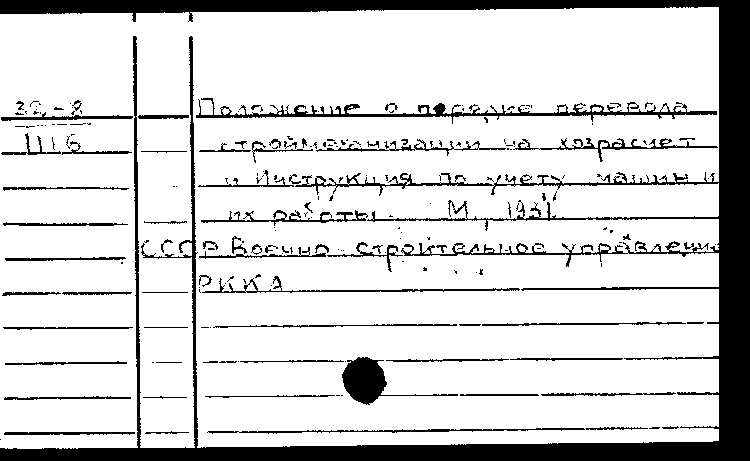 32-8
1116
Положение о порядке перевода
строймеханизации на хозрасчет
и Инструкция по учету машин и
их работы. М., 1931.
СССР Военно-строительное управление
РККА